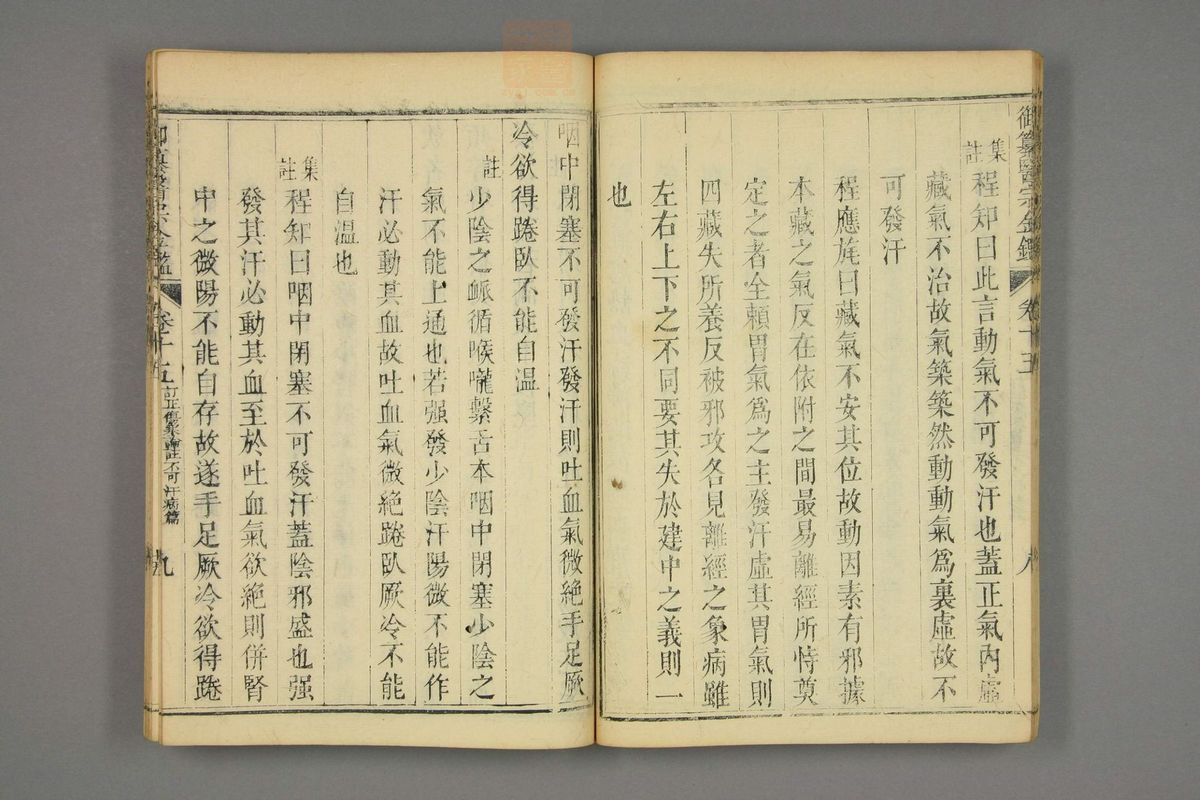 御纂醫宗金鑑 卷十五 八
集註 程知曰此言動氣不可發汗也蓋正氣內虛
藏氣不治故氣築築然動動氣爲裏虛故不
可發汗
程應旄曰藏氣不安其位故動因素有邪據
本藏之氣反在依附之間最易離經所恃奠
定之者全賴胃氣爲之主發汗虛其胃氣則
四藏失所養反被邪攻各見離經之象病雖
左右上下之不同要其失於建中之義則一
也
咽中閉塞不可發汗發汗則吐血氣微絶手足厥
冷欲得踡臥不能自溫
註 少陰之脈循喉嚨繫舌本咽中閉塞少陰之
氣不能上通也若强發少陰汗陽微不能作
汗必動其血故吐血氣微絶踡臥厥冷不能
自溫也
集註 程知曰咽中閉塞不可發汗蓋陰邪盛也强
發其汗必動其血至於吐血氣欲絶則併腎
中之微陽不能自存故遂手足厥冷欲得踡
御纂醫宗金鑑 卷十五 訂正傷寒論註不可汗病篇 九